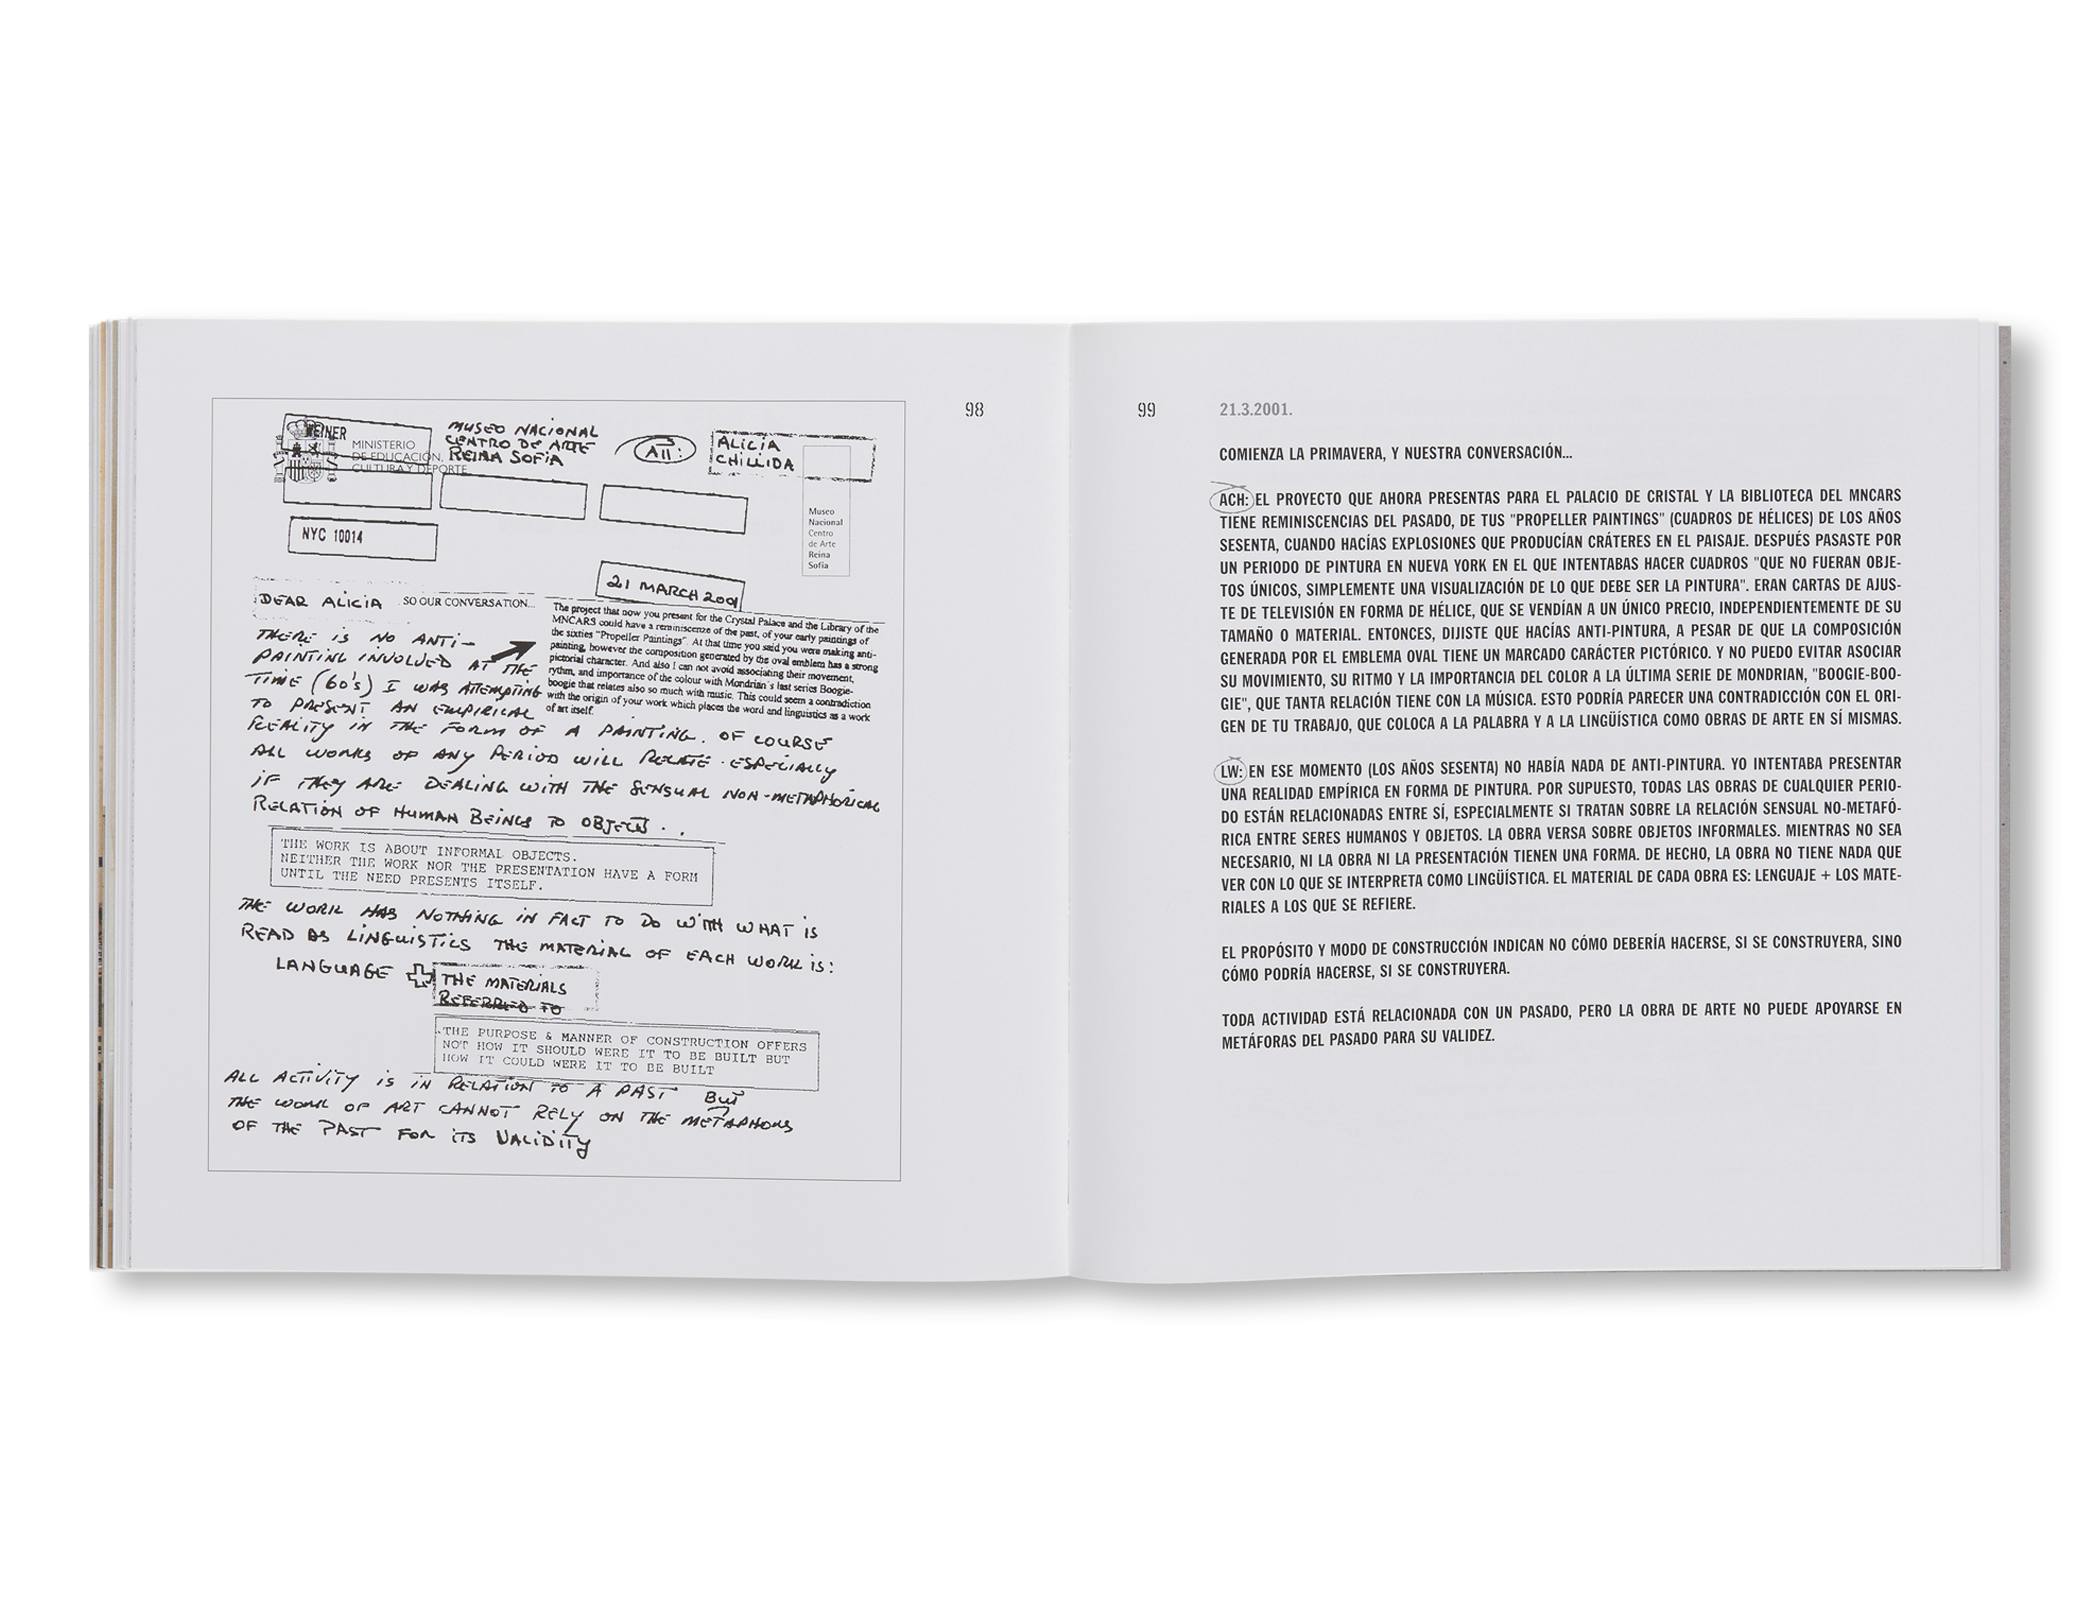 WEINER
MINISTERIO
DE EDUCACIÓN,
CULTURA Y DEPORTE
MUSEO NACIONAL
CENTRO DE ARTE
REINA SOFIA
ATT:
ALICIA
CHILLIDA
NYC 10014
Museo
Nacional
Centro
de Arte
Reina
Sofía
21 MARCH 2001
DEAR ALICIA
SO OUR CONVERSATION...
The project that now you present for the Crystal Palace and the Library of the
MNCARS could have a reminiscenze of the past, of your early paintings of
the sixties "Propeller Paintings". At that time you said you were making anti-
painting, however the composition generated by the oval emblem has a strong
pictorial character. And also I can not avoid associating their movement,
rythm, and importance of the colour with Mondrian's last series Boogie-
boogie that relates also so much with music. This could seem a contradiction
with the origin of your work which places the word and linguistics as a work
of art itself.
THERE IS NO ANTI-
PAINTING INVOLVED AT THE
TIME (60'S) I WAS ATTEMPTING
TO PRESENT AN EMPIRICAL
REALITY IN THE FORM OF A PAINTING. OF COURSE
ALL WORKS OF ANY PERIOD WILL RELATE. ESPECIALLY
IF THEY ARE DEALING WITH THE SENSUAL NON-METAPHORICAL
RELATION OF HUMAN BEINGS TO OBJECTS...
THE WORK IS ABOUT INFORMAL OBJECTS.
NEITHER THE WORK NOR THE PRESENTATION HAVE A FORM
UNTIL THE NEED PRESENTS ITSELF.
THE WORK HAS NOTHING IN FACT TO DO WITH WHAT IS
READ AS LINGUISTICS THE MATERIAL OF EACH WORK IS:
LANGUAGE + THE MATERIALS
REFERRED TO
THE PURPOSE & MANNER OF CONSTRUCTION OFFERS
NOT HOW IT SHOULD WERE IT TO BE BUILT BUT
HOW IT COULD WERE IT TO BE BUILT
ALL ACTIVITY IS IN RELATION TO A PAST BUT
THE WORK OF ART CANNOT RELY ON THE METAPHORS
OF THE PAST FOR ITS VALIDITY
98
99
21.3.2001.
COMIENZA LA PRIMAVERA, Y NUESTRA CONVERSACIÓN...
ACH: EL PROYECTO QUE AHORA PRESENTAS PARA EL PALACIO DE CRISTAL Y LA BIBLIOTECA DEL MNCARS
TIENE REMINISCENCIAS DEL PASADO, DE TUS "PROPELLER PAINTINGS" (CUADROS DE HÉLICES) DE LOS AÑOS
SESENTA, CUANDO HACÍAS EXPLOSIONES QUE PRODUCÍAN CRÁTERES EN EL PAISAJE. DESPUÉS PASASTE POR
UN PERIODO DE PINTURA EN NUEVA YORK EN EL QUE INTENTABAS HACER CUADROS "QUE NO FUERAN OBJE-
TOS ÚNICOS, SIMPLEMENTE UNA VISUALIZACIÓN DE LO QUE DEBE SER LA PINTURA". ERAN CARTAS DE AJUS-
TE DE TELEVISIÓN EN FORMA DE HÉLICE, QUE SE VENDÍAN A UN ÚNICO PRECIO, INDEPENDIENTEMENTE DE SU
TAMAÑO O MATERIAL. ENTONCES, DIJISTE QUE HACÍAS ANTI-PINTURA, A PESAR DE QUE LA COMPOSICIÓN
GENERADA POR EL EMBLEMA OVAL TIENE UN MARCADO CARÁCTER PICTÓRICO. Y NO PUEDO EVITAR ASOCIAR
SU MOVIMIENTO, SU RITMO Y LA IMPORTANCIA DEL COLOR A LA ÚLTIMA SERIE DE MONDRIAN, "BOOGIE-BOO-
GIE", QUE TANTA RELACIÓN TIENE CON LA MÚSICA. ESTO PODRÍA PARECER UNA CONTRADICCIÓN CON EL ORI-
GEN DE TU TRABAJO, QUE COLOCA A LA PALABRA Y A LA LINGÜÍSTICA COMO OBRAS DE ARTE EN SÍ MISMAS.
LW: EN ESE MOMENTO (LOS AÑOS SESENTA) NO HABÍA NADA DE ANTI-PINTURA. YO INTENTABA PRESENTAR
UNA REALIDAD EMPÍRICA EN FORMA DE PINTURA. POR SUPUESTO, TODAS LAS OBRAS DE CUALQUIER PERIO-
DO ESTÁN RELACIONADAS ENTRE SÍ, ESPECIALMENTE SI TRATAN SOBRE LA RELACIÓN SENSUAL NO-METAFÓ-
RICA ENTRE SERES HUMANOS Y OBJETOS. LA OBRA VERSA SOBRE OBJETOS INFORMALES. MIENTRAS NO SEA
NECESARIO, NI LA OBRA NI LA PRESENTACIÓN TIENEN UNA FORMA. DE HECHO, LA OBRA NO TIENE NADA QUE
VER CON LO QUE SE INTERPRETA COMO LINGÜÍSTICA. EL MATERIAL DE CADA OBRA ES: LENGUAJE + LOS MATE-
RIALES A LOS QUE SE REFIERE.
EL PROPÓSITO Y MODO DE CONSTRUCCIÓN INDICAN NO CÓMO DEBERÍA HACERSE, SI SE CONSTRUYERA, SINO
CÓMO PODRÍA HACERSE, SI SE CONSTRUYERA.
TODA ACTIVIDAD ESTÁ RELACIONADA CON UN PASADO, PERO LA OBRA DE ARTE NO PUEDE APOYARSE EN
METÁFORAS DEL PASADO PARA SU VALIDEZ.